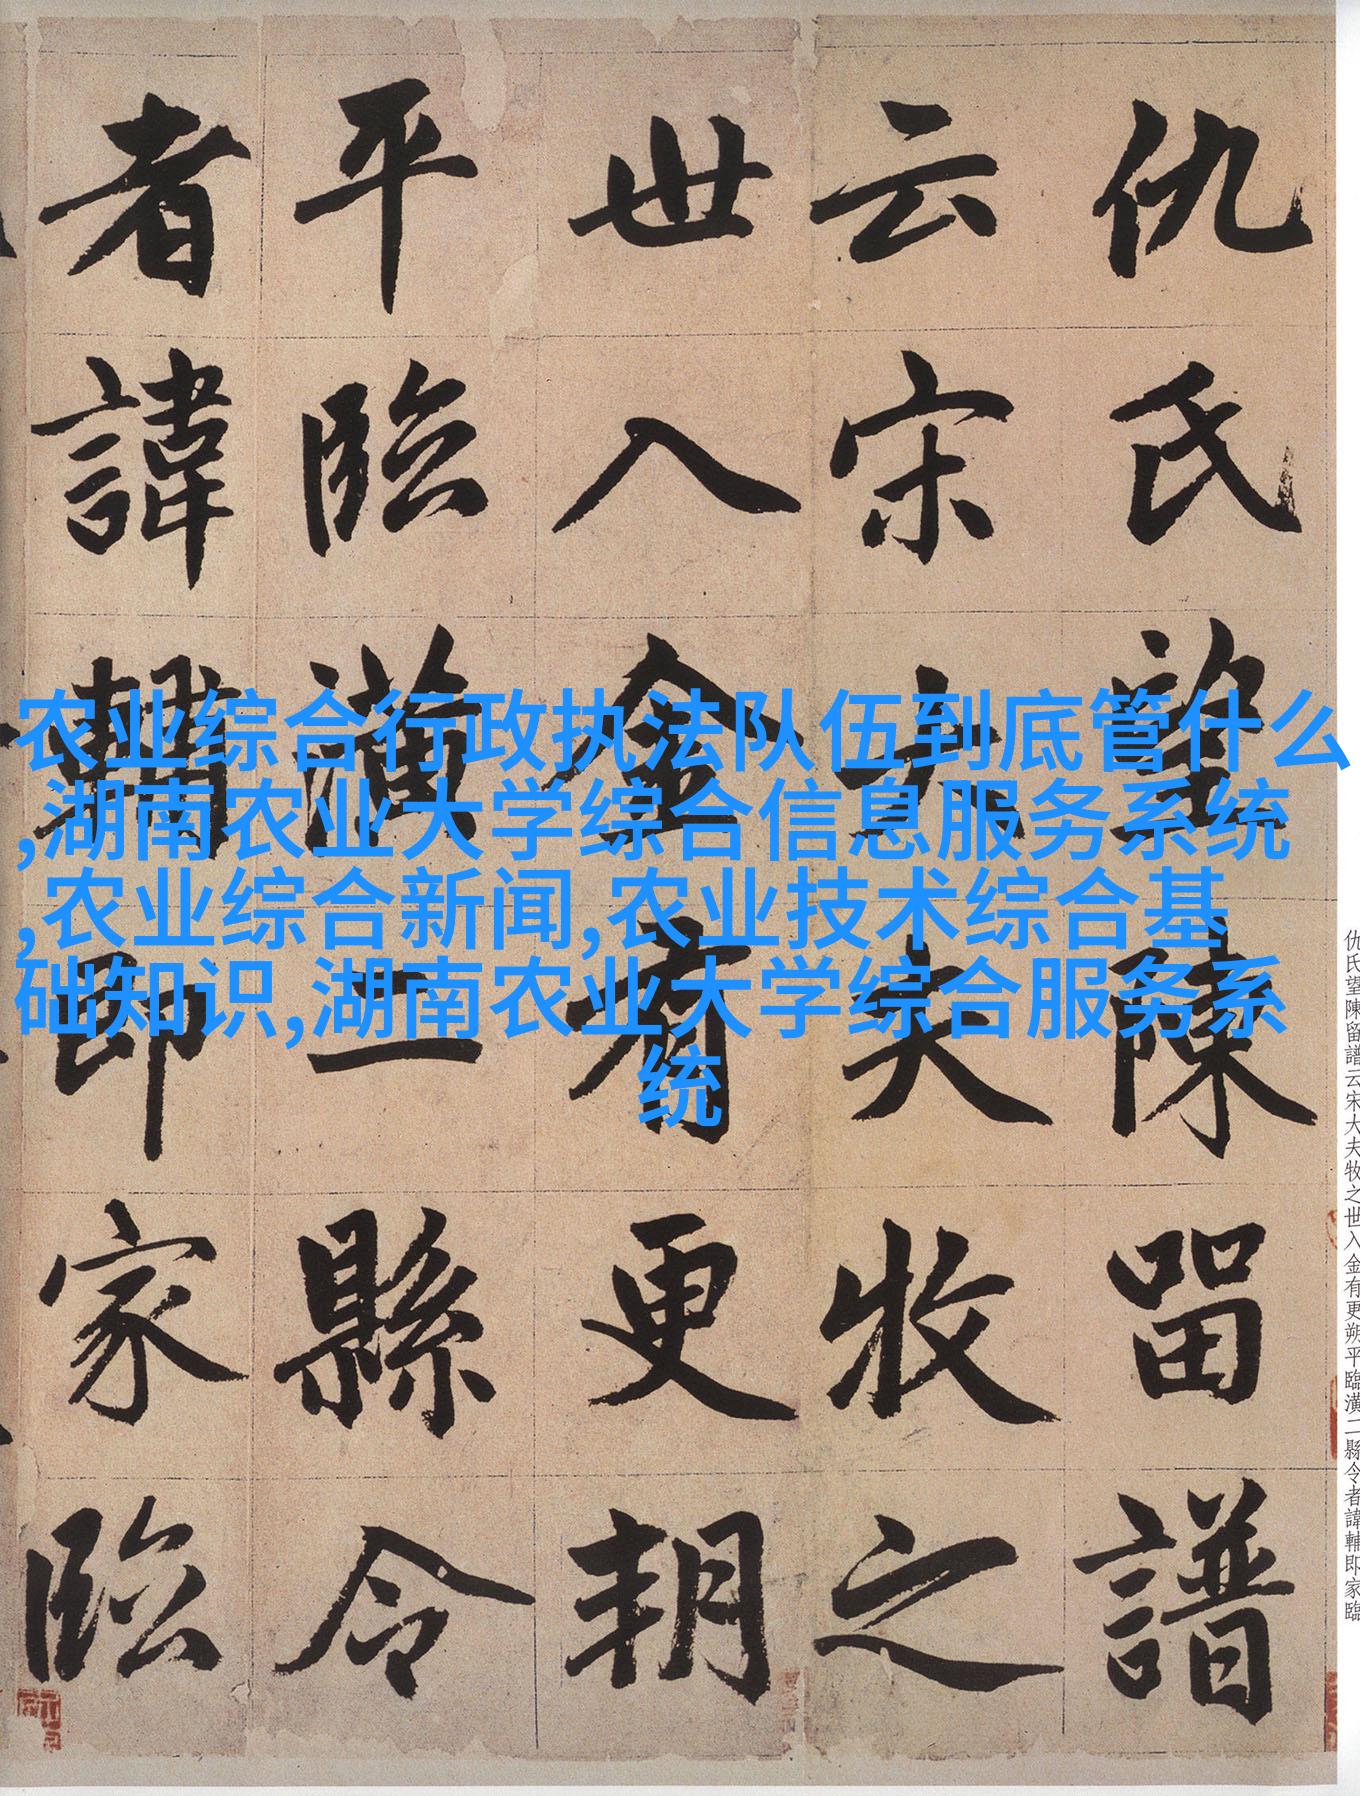 仇氏望陳留譜
云宋大夫牧之
世入金有更朔
平臨潢二縣令
者諱輔即家臨
农业综合行政执法队伍到底管什么
,湖南农业大学综合信息服务系统
,农业综合新闻,农业技术综合基
础知识,湖南农业大学综合服务系
统
仇氏望陳留譜云宋大夫牧之世入金有更朔平臨潢二縣令者諱輔即家臨